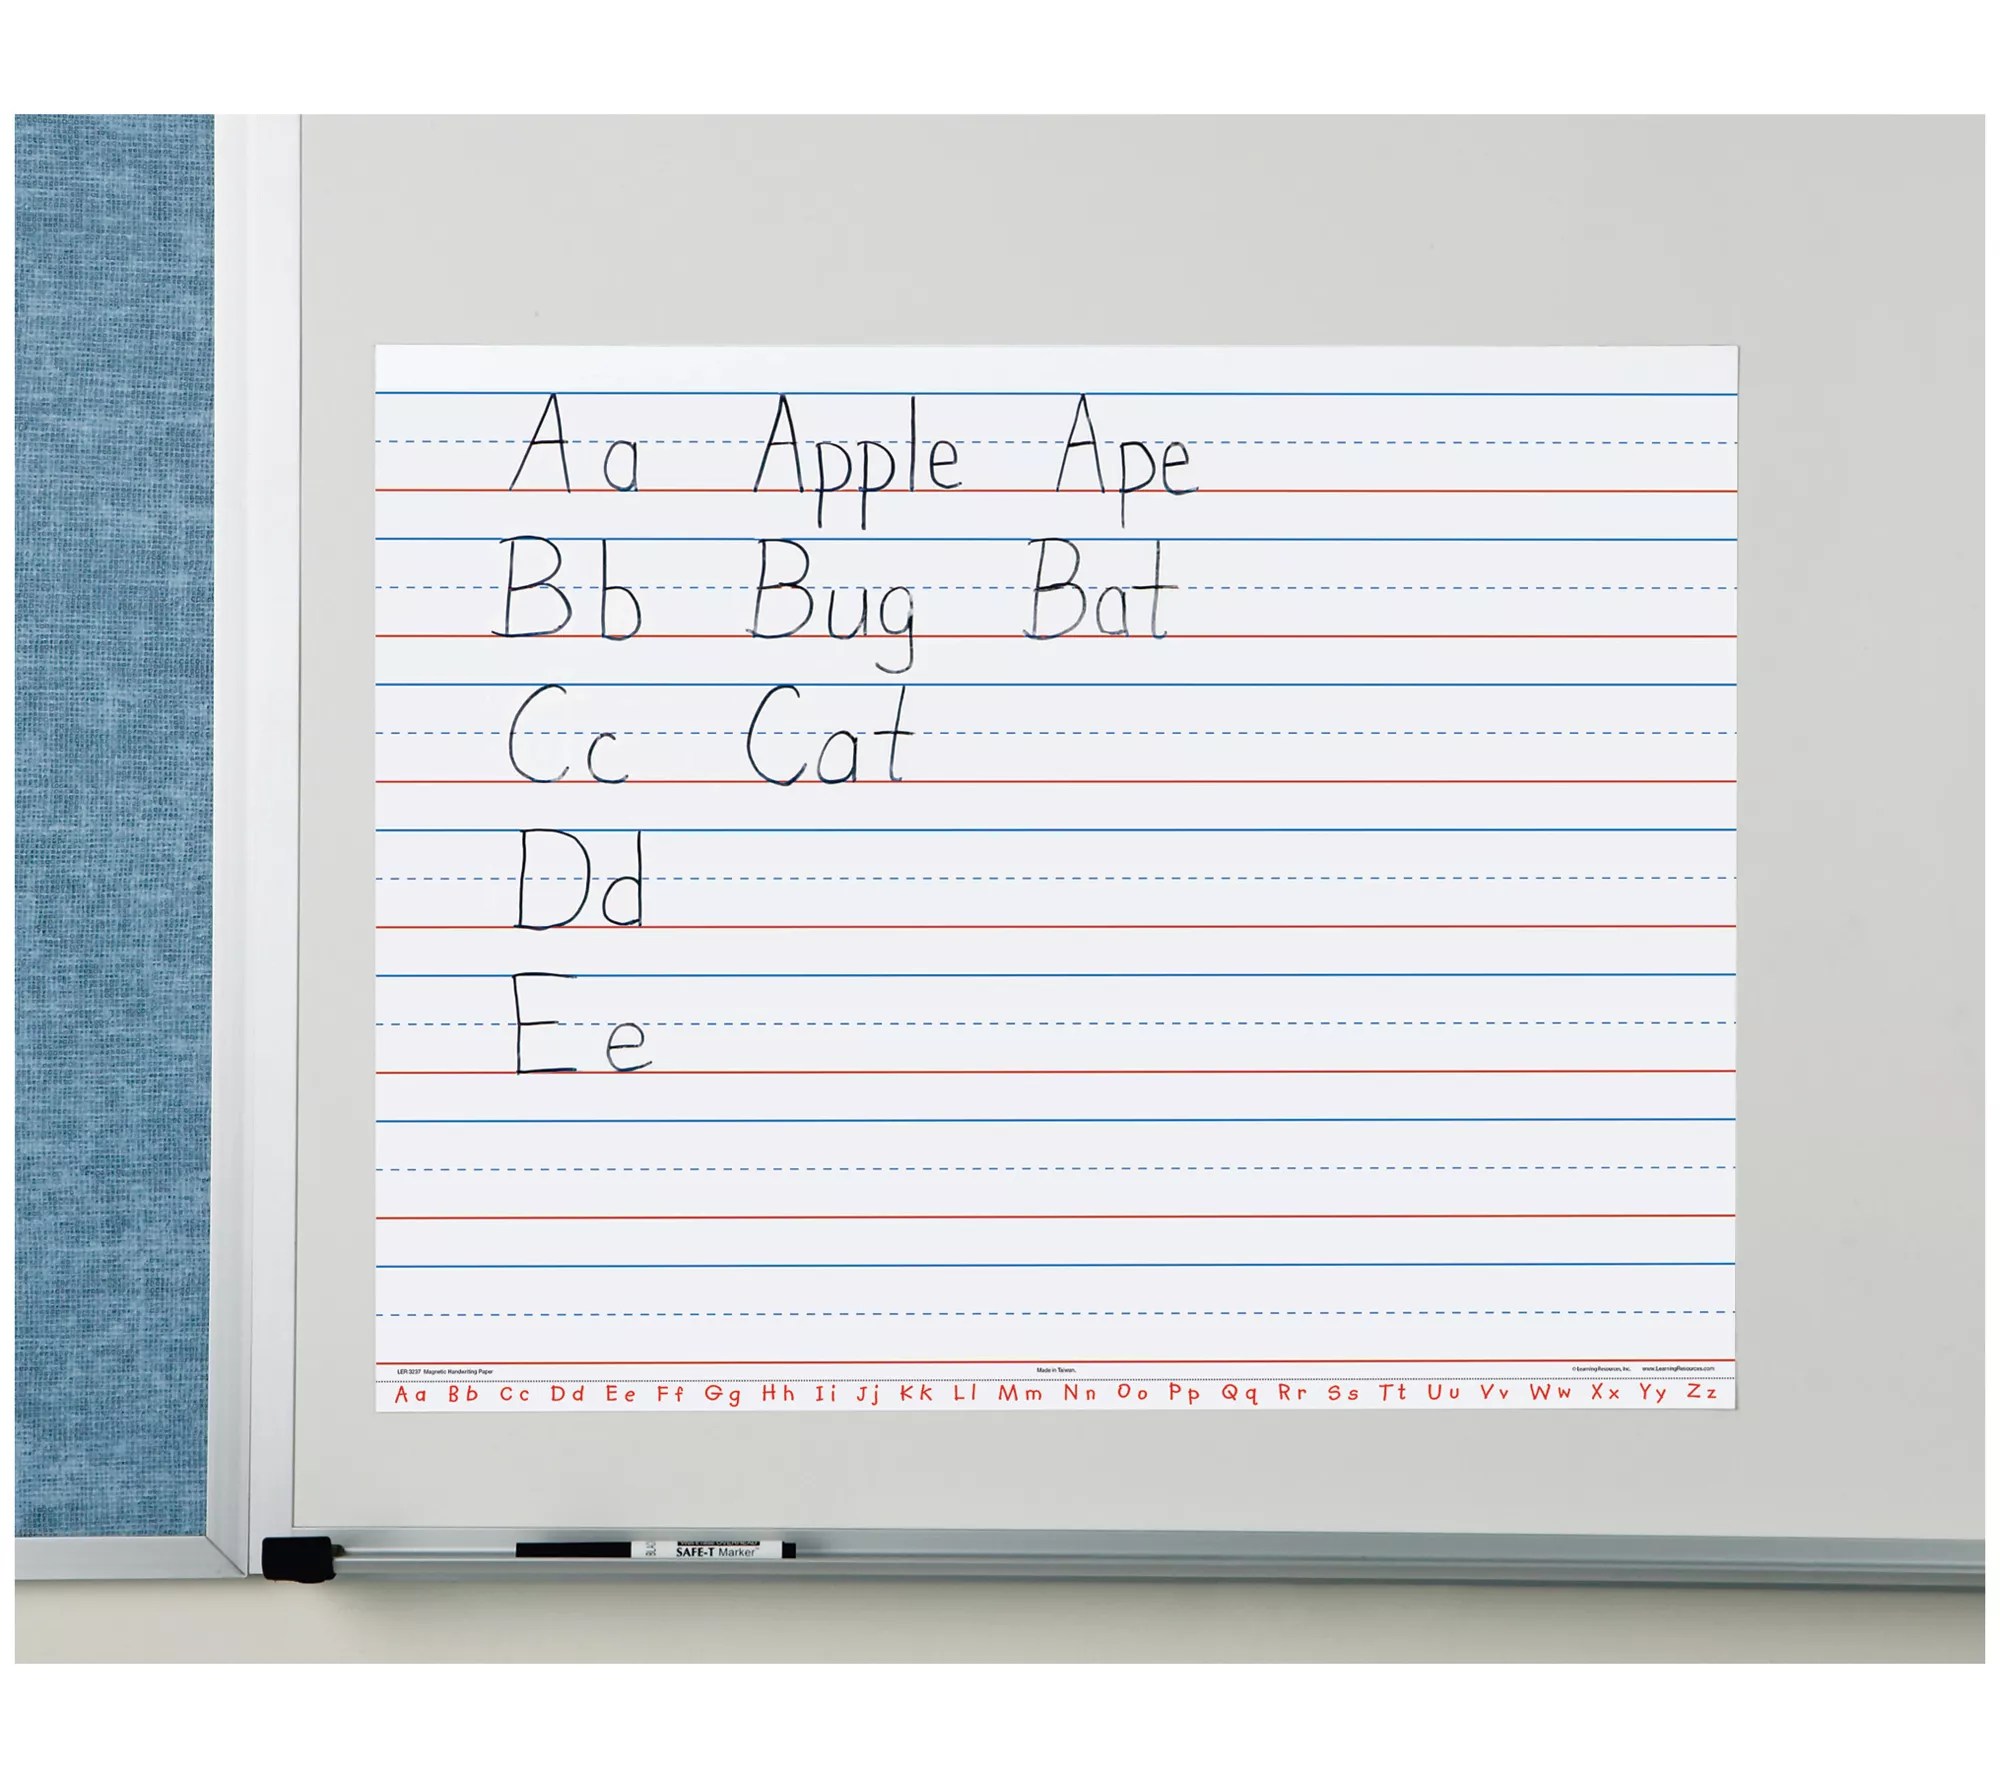 Aa Apple Ape
Bb Bug Bat
Cc Cat
Dd
Ee
LER 3237 Magnetic Handwriting Paper Made in Taiwan. © Learning Resources, Inc. www.LearningResources.com
Aa Bb Cc Dd Ee Ff Gg Hh Ii Jj Kk Ll Mm Nn Oo Pp Qq Rr Ss Tt Uu Vv Ww Xx Yy Zz
SAFE-T Marker™